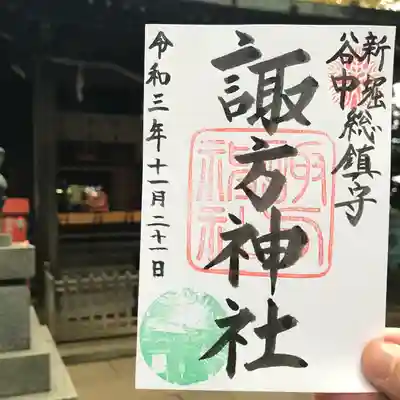 新堀
谷中総鎮守
諏方神社
令和三年十一月二十一日